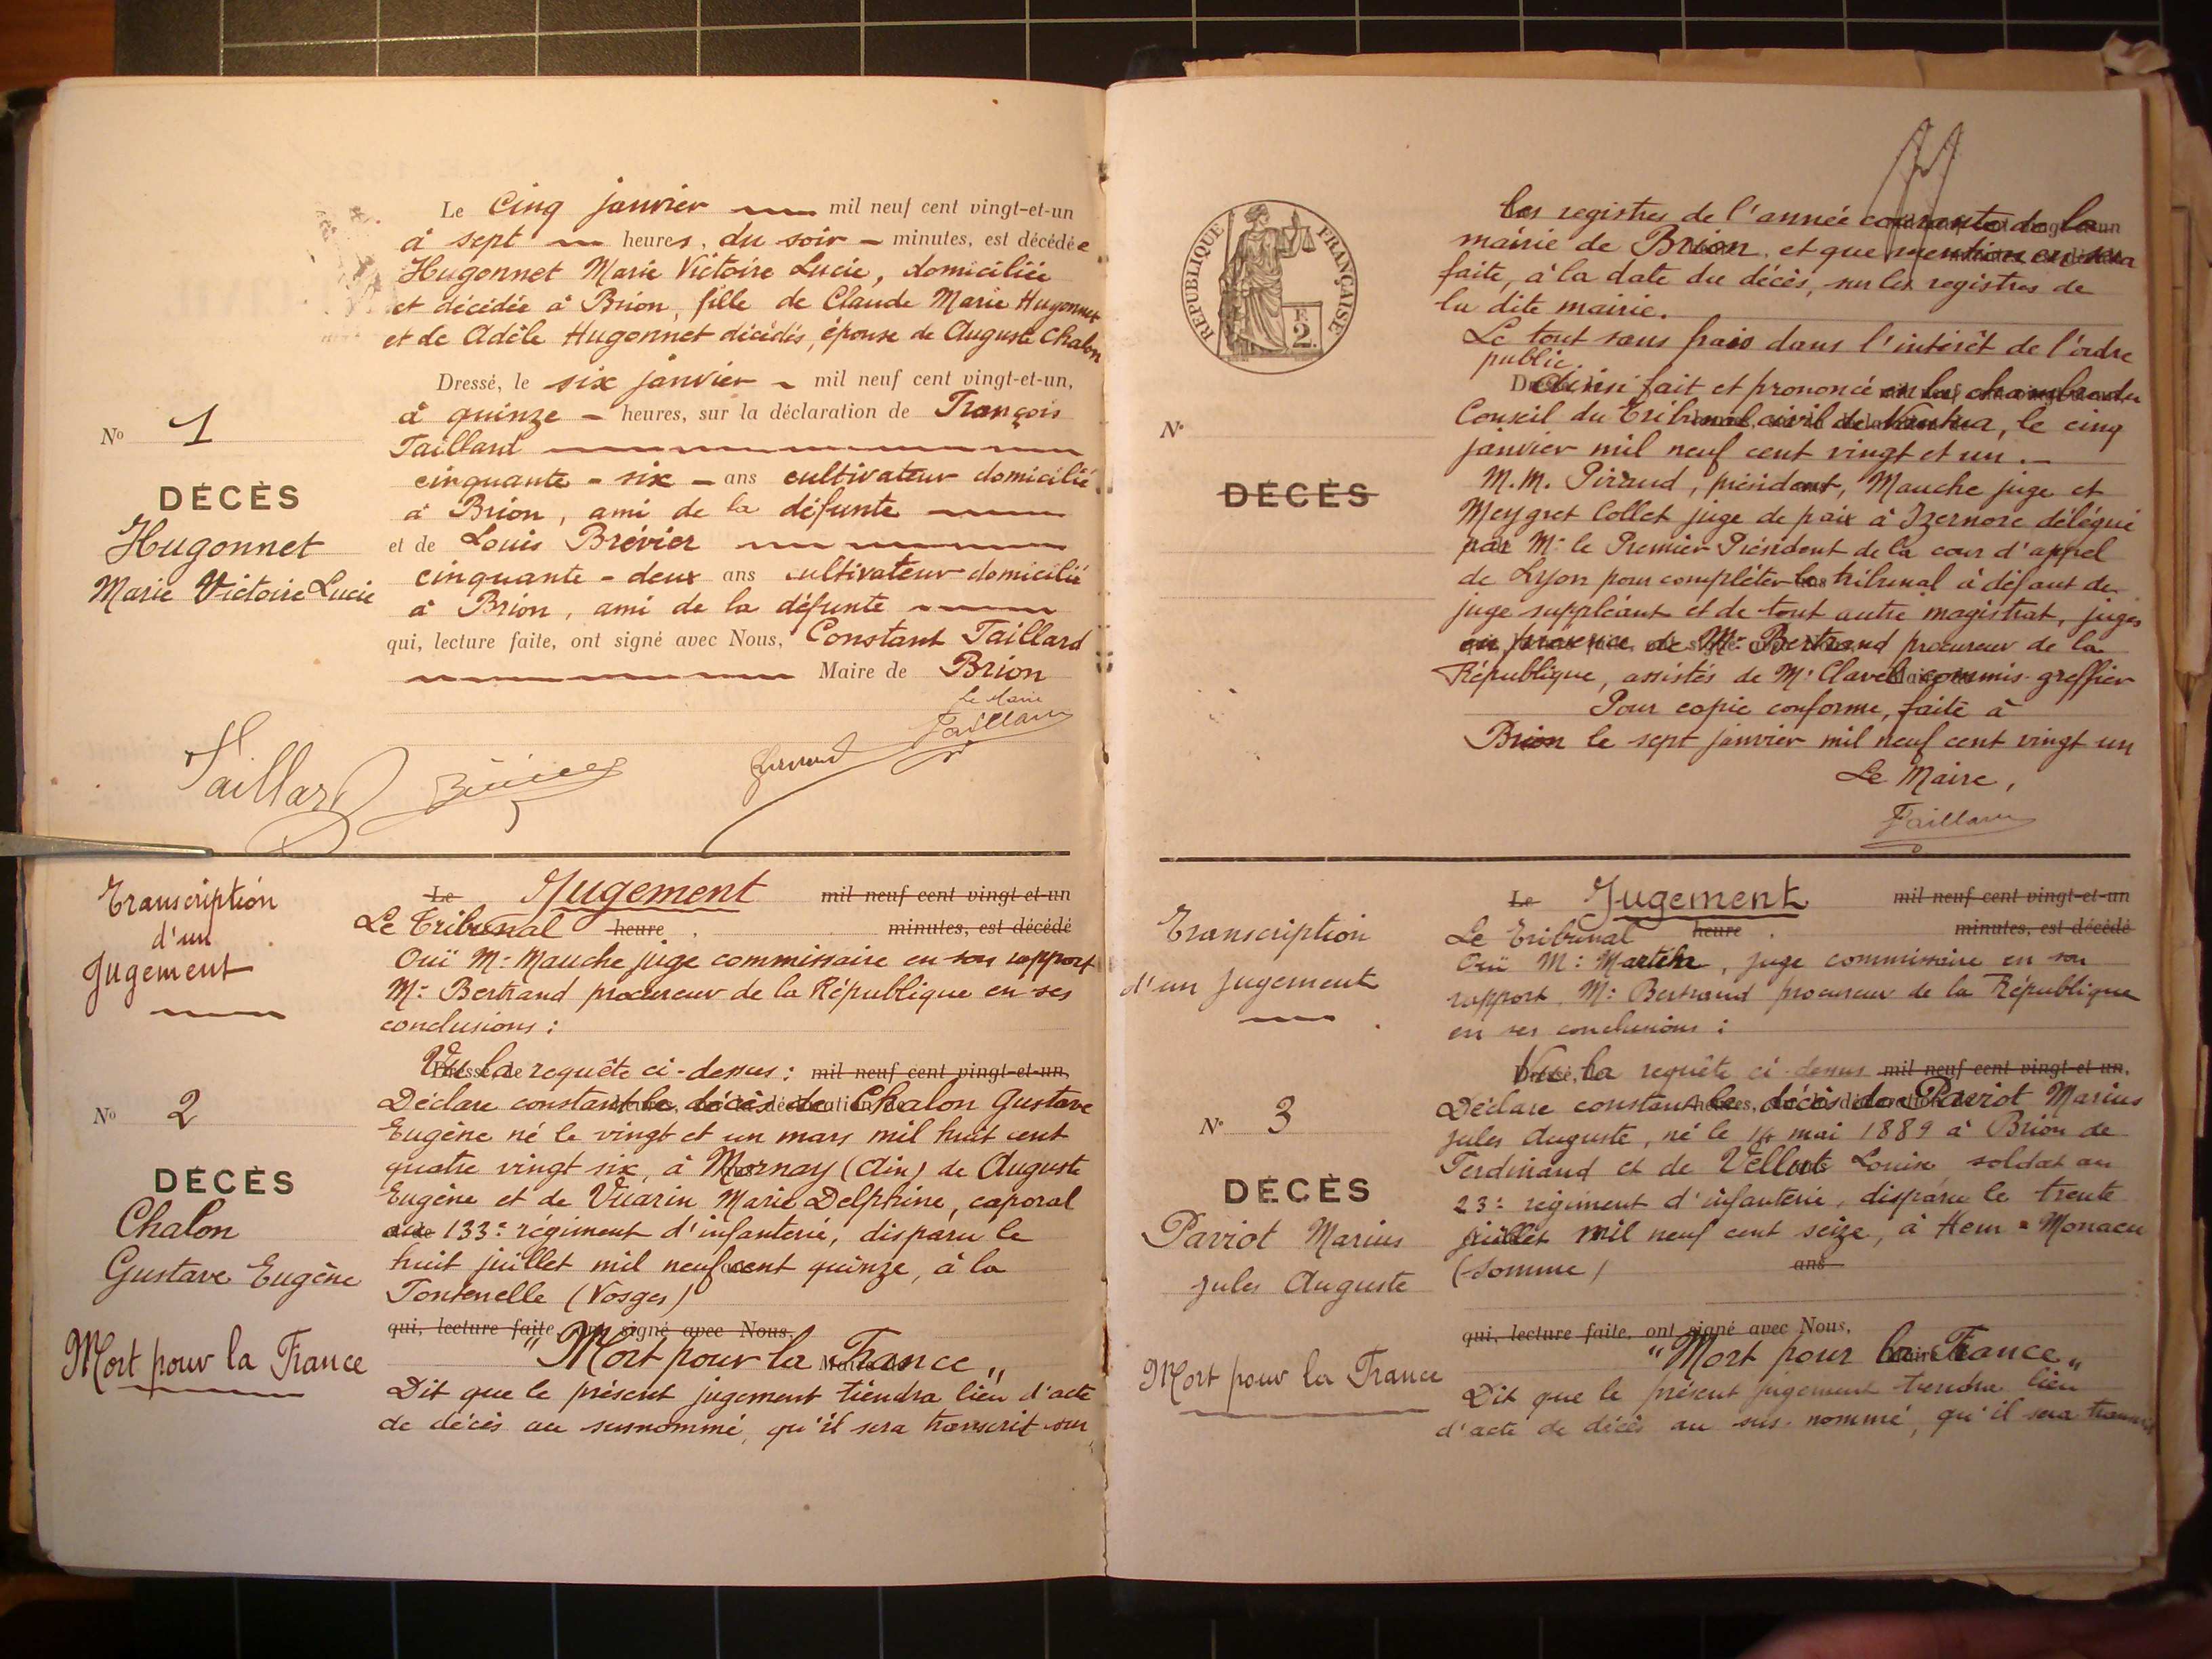 Le Cinq janvier mil neuf cent vingt-et-un
à sept heures, du soir minutes, est décédée
Hugonnet Marie Victoire Lucie, domiciliée
et décédée à Brion, fille de Claude Marie Hugonnet
et de Adèle Hugonnet décédés, épouse de Auguste Chalon
Dressé, le six janvier mil neuf cent vingt-et-un,
à quinze heures, sur la déclaration de François
Taillard
cinquante - six - ans cultivateur domicilié
à Brion, ami de la défunte
et de Louis Brévier
cinquante - deux ans cultivateur domicilié
à Brion, ami de la défunte
qui, lecture faite, ont signé avec Nous, Constant Taillard
Maire de Brion
Le Maire
Taillard
Taillard
No 1
DÉCÈS
Hugonnet
Marie Victoire Lucie
Transcription
d'un
Jugement
No 2
DÉCÈS
Chalon
Gustave Eugène
Mort pour la France
Le Jugement mil neuf cent vingt-et-un
Le Tribunal heure minutes, est décédé
Ouï M: Mauche juge commissaire en son rapport
M: Bertrand procureur de la République en ses
conclusions :
Vu la requête ci-dessus : mil neuf cent vingt-et-un,
Déclare constant le décès de Chalon Gustave
Eugène né le vingt et un mars mil huit cent
quatre vingt six, à Mornay (Ain) de Auguste
Eugène et de Vuarin Marie Delphine, caporal
au 133e régiment d'infanterie, disparu le
huit juillet mil neuf cent quinze, à la
Fontenelle (Vosges)
qui, lecture faite, ont signé avec Nous,
"Mort pour la France"
Dit que le présent jugement tiendra lieu d'acte
de décès au susnommé, qu'il sera transcrit sur
RÉPUBLIQUE FRANÇAISE
2
F.
No
DÉCÈS
les registres de l'année courante de la
mairie de Brion, et que mention en sera
faite, à la date du décès, sur les registres de
la dite mairie.
Le tout sans frais dans l'intérêt de l'ordre
public.
Ainsi fait et prononcé en la chambre du
Conseil du Tribunal civil de Nantua, le cinq
janvier mil neuf cent vingt et un.
M.M. Pirraud, président, Mauche juge et
Meygret Collet juge de paix à Izernore délégué
par M: le Premier Président de la cour d'appel
de Lyon pour compléter le tribunal à défaut de
juge suppléant et de tout autre magistrat, juges
en présence de M: Bertrand procureur de la
République, assistés de M: Clavel commis-greffier
Pour copie conforme, faite à
Brion le sept janvier mil neuf cent vingt un
Le Maire,
Taillard
Transcription
d'un Jugement
No 3
DÉCÈS
Parriot Marius
Jules Auguste
Mort pour la France
Le Jugement mil neuf cent vingt-et-un
Le Tribunal heure minutes, est décédé
Ouï M: juge commissaire en son
rapport, M: Bertrand procureur de la République
en ses conclusions :
Vu la requête ci-dessus mil neuf cent vingt-et-un,
Déclare constant le décès de Parriot Marius
Jules Auguste, né le 14 mai 1889 à Brion de
Ferdinand et de Louise soldat au
23e régiment d'infanterie, disparu le trente
juillet mil neuf cent seize, à Hem - Monacu
(Somme) ans
qui, lecture faite, ont signé avec Nous,
"Mort pour la France"
Dit que le présent jugement tiendra lieu
d'acte de décès au sus-nommé, qu'il sera transcrit